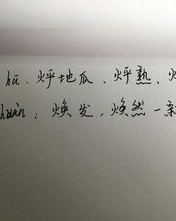 hū. 烀地瓜、烀熟、
huàn, 焕发, 焕然一